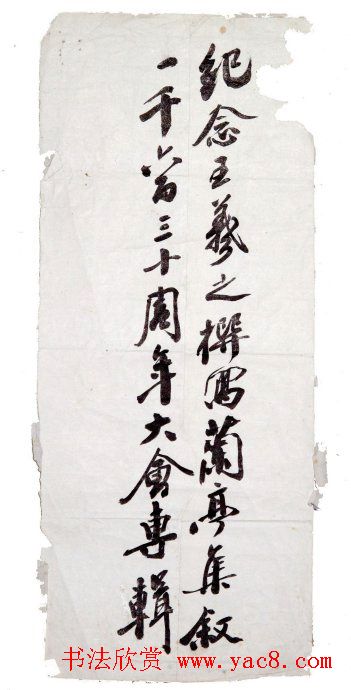 紀念王羲之撰寫蘭亭集敘
一千六百三十周年大會專輯
书法欣赏 www.yac8.com